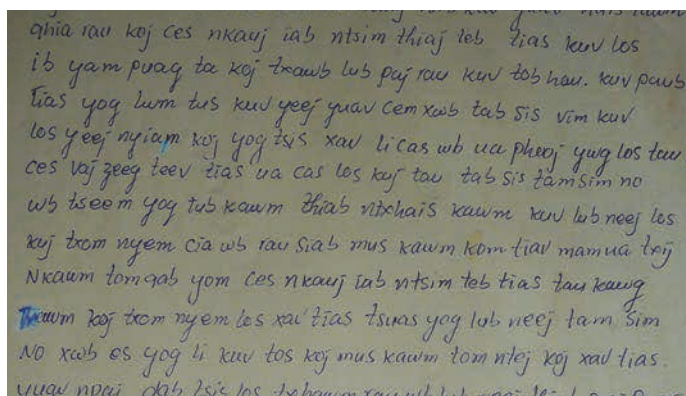 qhia rau koj ces nkauj iab ntsim thiaj teb tias kuv los
ib yam puag ta koj txawb lub paj rau kuv tob hau. kuv paub
tias yog lwm tus kuv yeej yuav cem xwb tab sis vim kuv
los yeej nyiam koj yog tsis xav li cas wb ua phooj ywg los tau
ces vaj zeeg teev tias ua cas los kuj tau tab sis tam sim no
wb tseem yog tub kawm thiab ntxhais kawm kuv lub neej los
kuj txom nyem cia wb rau siab mus kawm kom tiav mam ua txij
Nkawm tom qab yom ces nkauj iab ntsim teb tias tau kawg
koj txom nyem los xav tias tsuas yog lub neej tam sim
No xwb es yog li kuv tos koj mus kawm tom ntej koj xav tias.
yuav npaj dab tsis los